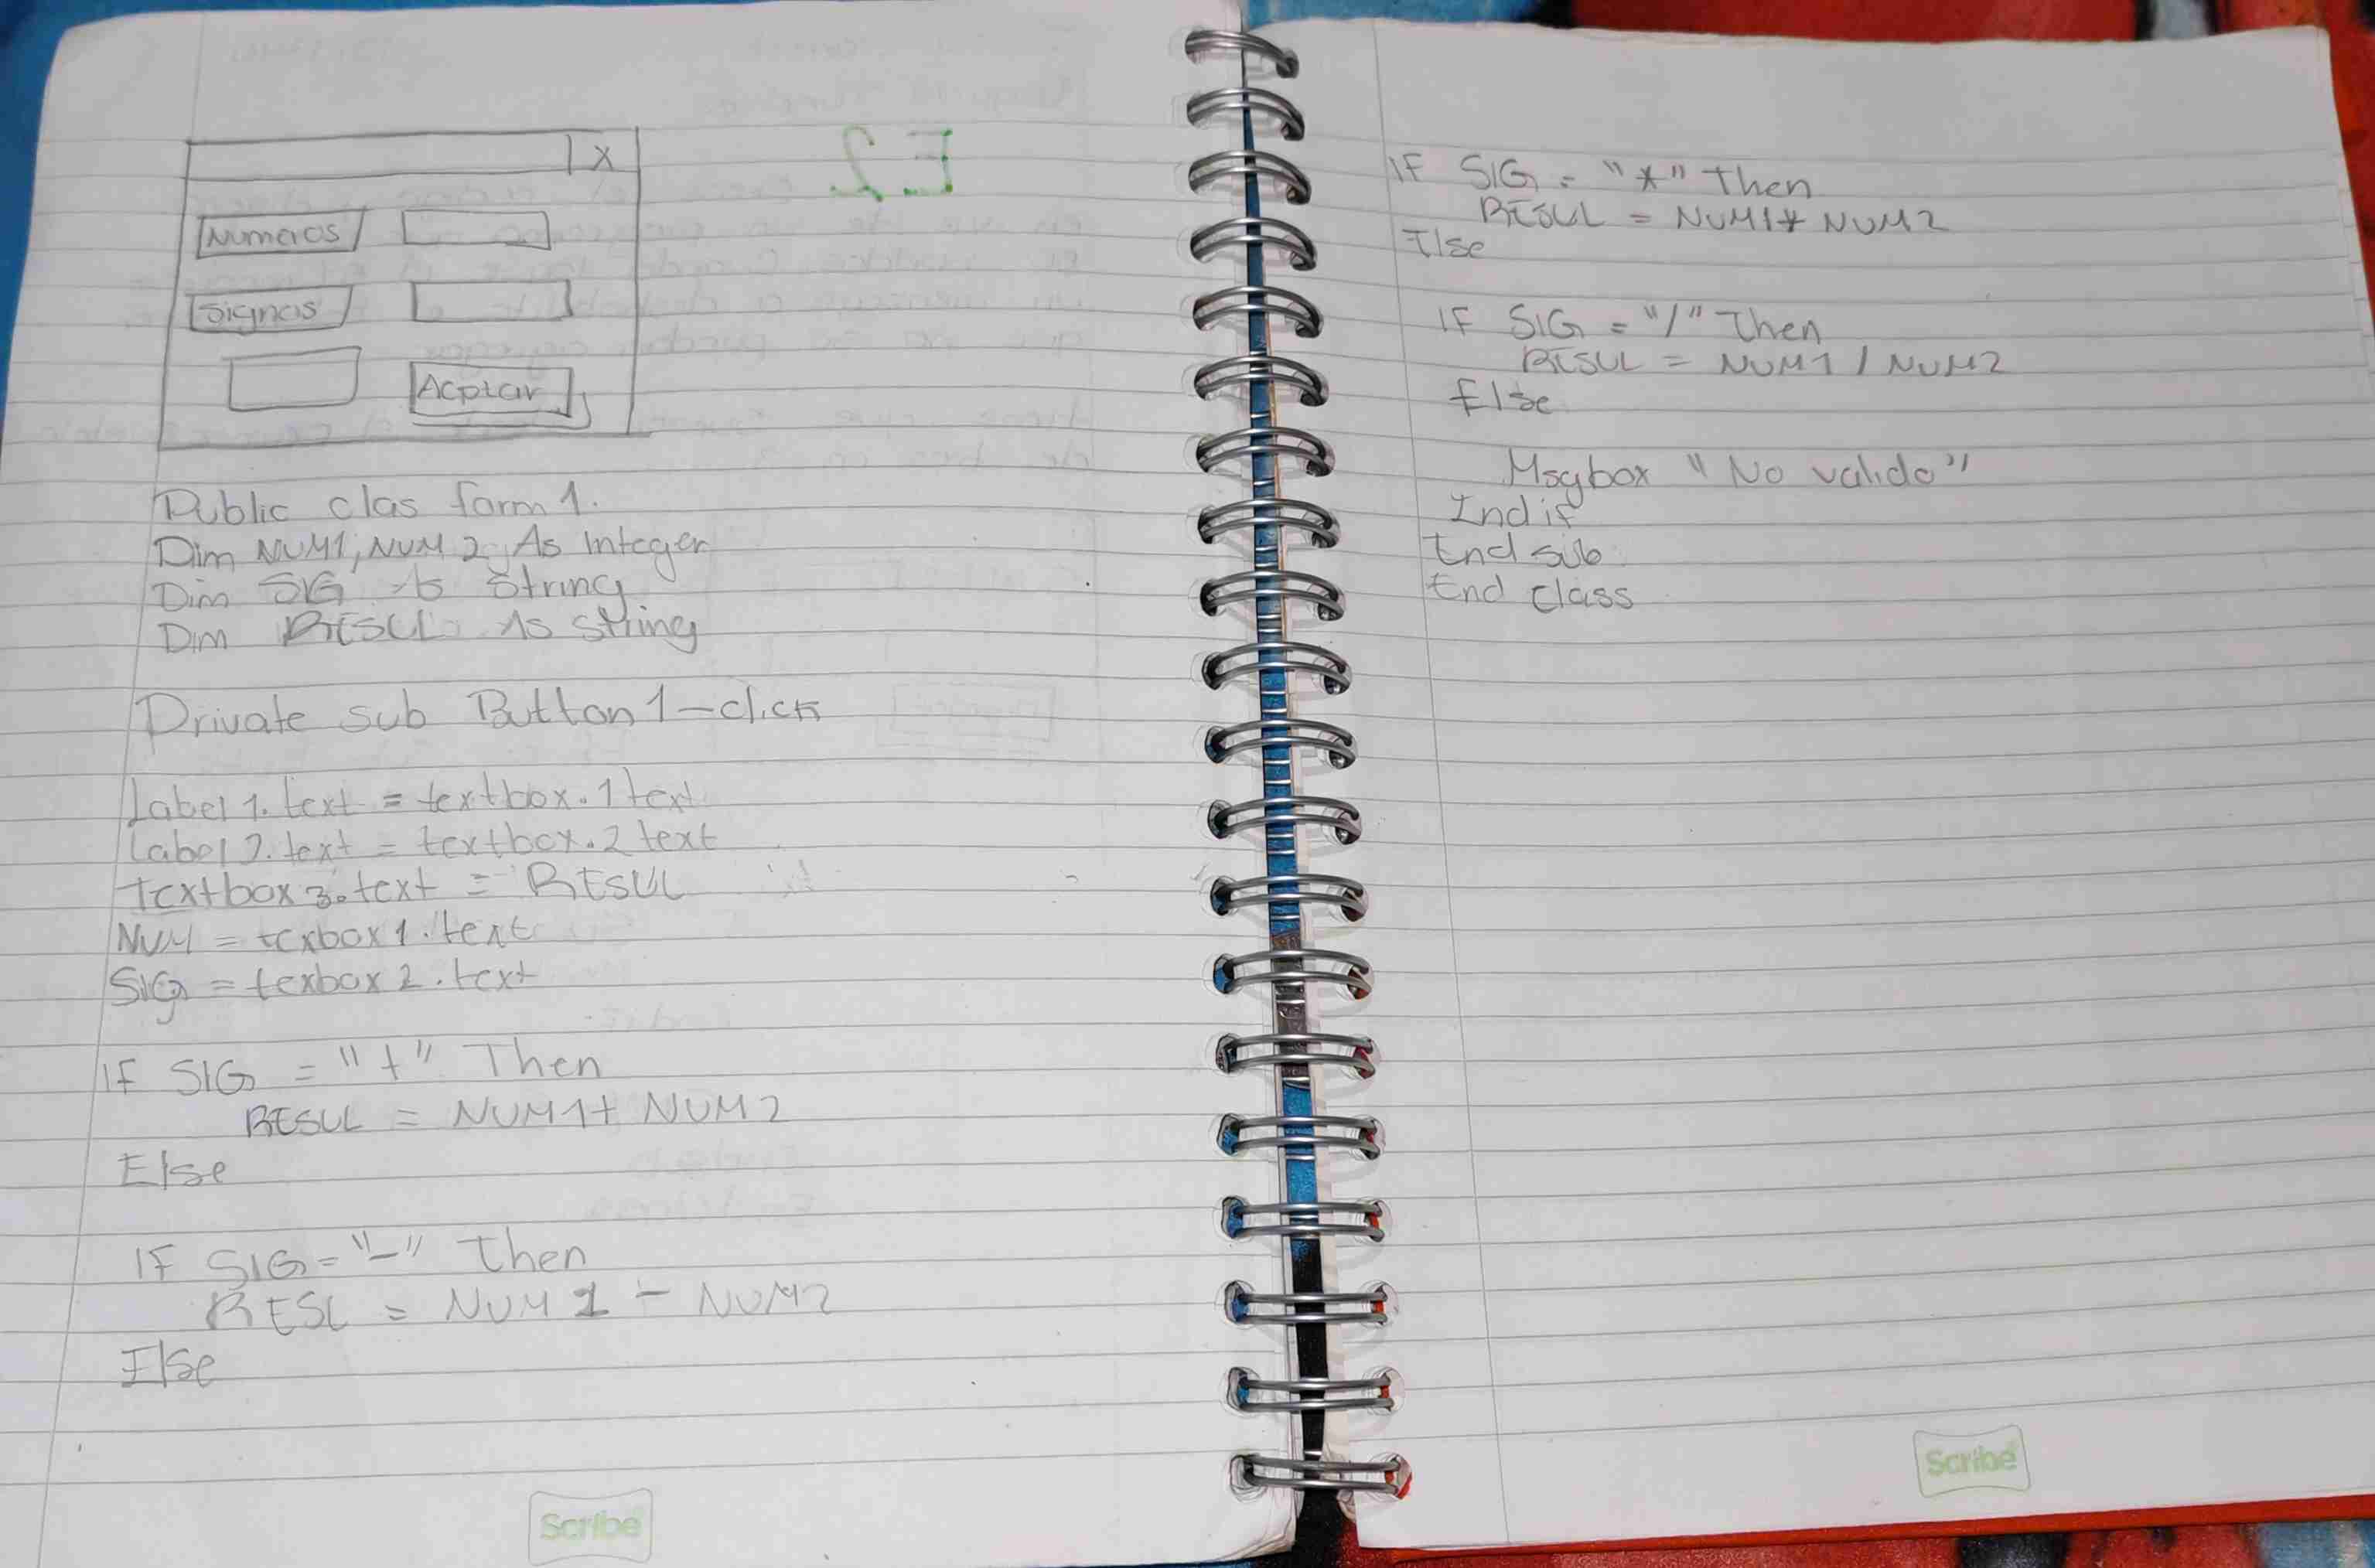 E2
X
Numeros
Signos
Acptar
Public clas form 1.
Dim NUM1, NUM 2 As Integer
Dim SIG As String
Dim RESUL As string
Private sub Button 1-click
Label 1. text = textbox. 1 text
Label 2. text = textbox. 2 text
textbox 3. text = RESUL
NUM = texbox 1. text
SIG = texbox 2. text
IF SIG = "+" Then
RESUL = NUM1+ NUM2
Else
IF SIG = "-" Then
RESL = NUM 1 - NUM2
Else
Scribe
IF SIG = "*" Then
RESUL = NUM1* NUM2
Else
IF SIG = "/" Then
RESUL = NUM1 / NUM2
Else
Msgbox "No valido"
End if
End sub
End class
Scribe